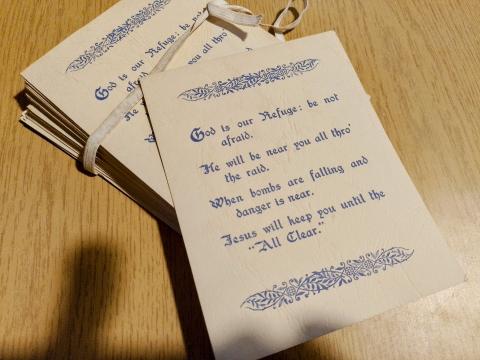 God is our Refuge: be not
afraid.
He will be near you all thro'
the raid.
When bombs are falling and
danger is near.
Jesus will keep you until the
"All Clear."
God is our Refuge: be not
afraid.
He you all thro'